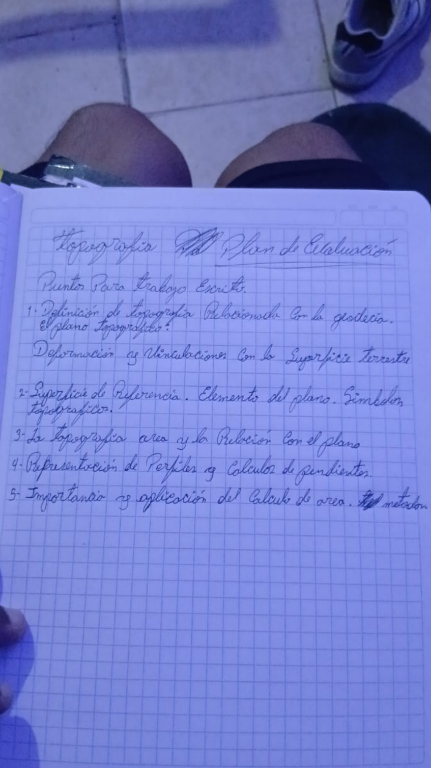 Topografia Plan de Evaluación
Puntos Para trabajo Escrito.
1- Definición de topografia Relacionada Con la geodecia.
El plano topográfico.
Deformación y Vinculaciones Con la Superficie terrestre
2- Superficie de Referencia. Elemento del plano. Simbolos
topograficos.
3- La topografia area y la Relación Con el plano
4- Representación de Perfiles y Calculos de pendientes
5- Importancia y aplicación del Calculo de area. metodos